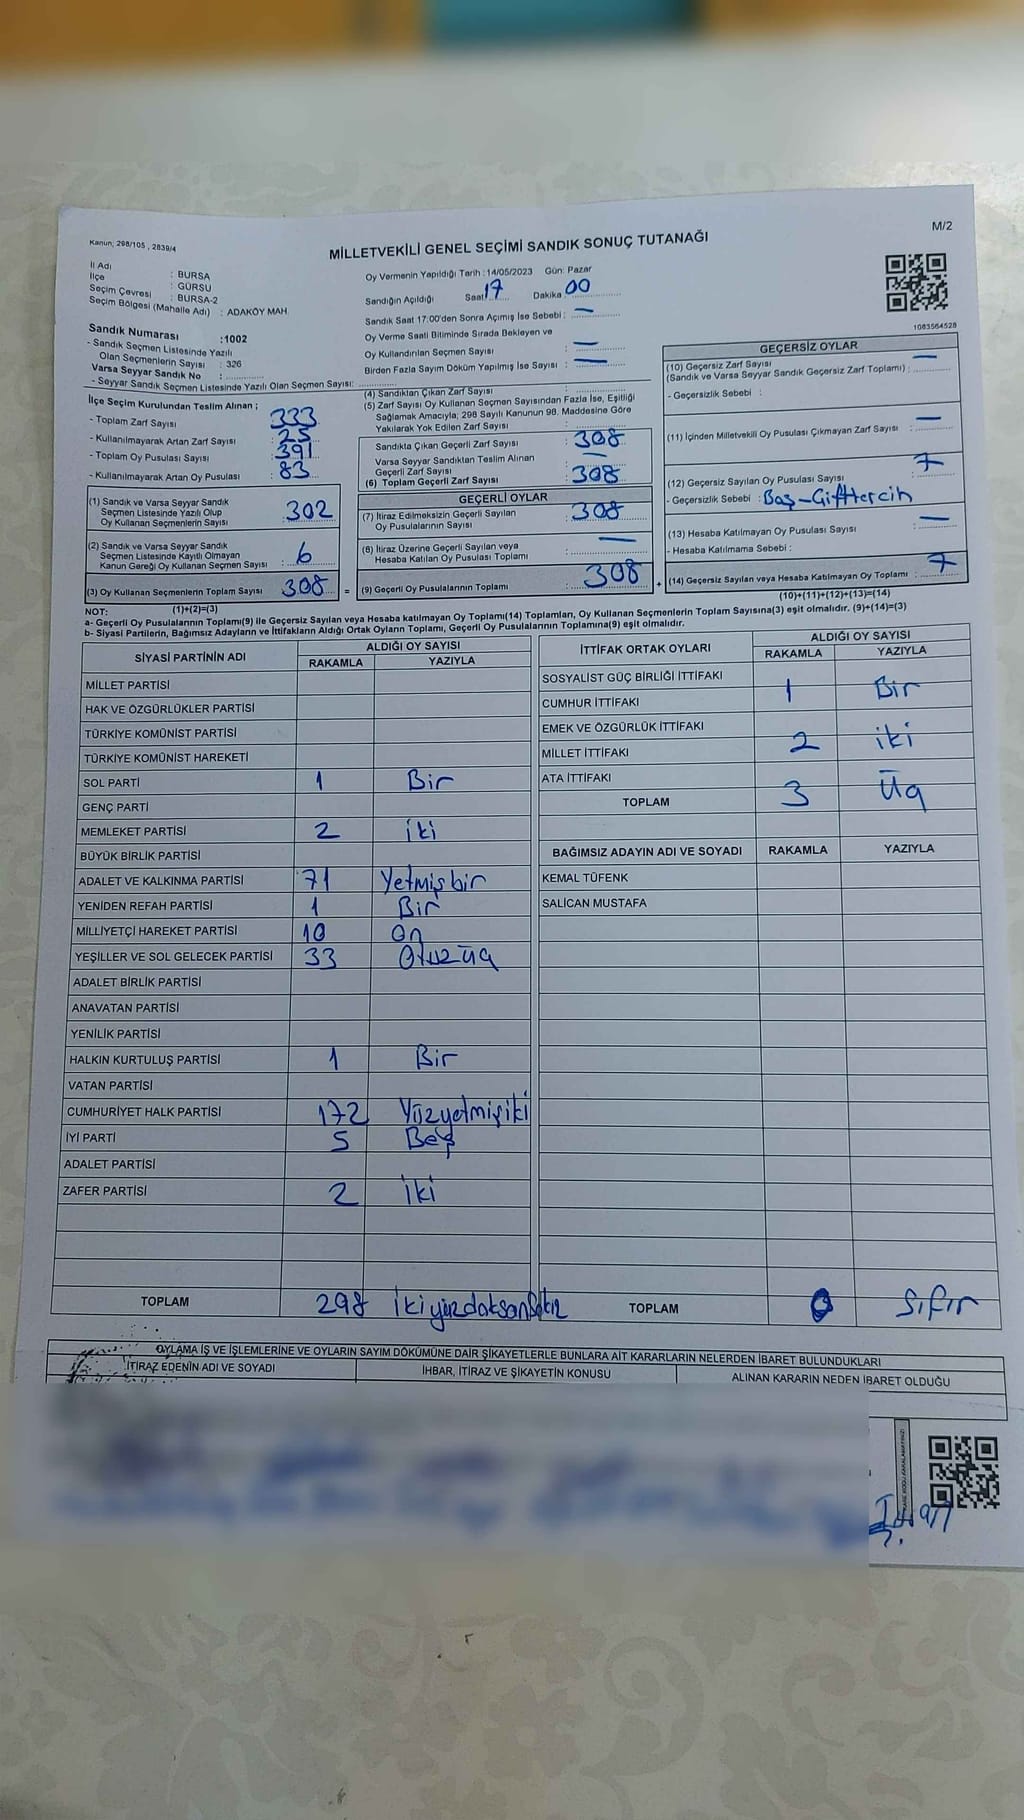 Kanun; 298/105 , 2839/4
M/2
MİLLETVEKİLİ GENEL SEÇİMİ SANDIK SONUÇ TUTANAĞI
İl Adı : BURSA
İlçe : GÜRSU
Seçim Çevresi : BURSA-2
Seçim Bölgesi (Mahalle Adı) : ADAKÖY MAH.
Sandık Numarası :1002
- Sandık Seçmen Listesinde Yazılı
Olan Seçmenlerin Sayısı : 326
Varsa Seyyar Sandık No :
- Seyyar Sandık Seçmen Listesinde Yazılı Olan Seçmen Sayısı:
Oy Vermenin Yapıldığı Tarih :14/05/2023 Gün: Pazar
Sandığın Açıldığı Saat 17 Dakika 00
Sandık Saat 17:00'den Sonra Açımış İse Sebebi : —
Oy Verme Saati Bitiminde Sırada Bekleyen ve
Oy Kullandırılan Seçmen Sayısı : —
Birden Fazla Sayım Döküm Yapılmış İse Sayısı : —
1083564528
İlçe Seçim Kurulundan Teslim Alınan ;
- Toplam Zarf Sayısı : 333
- Kullanılmayarak Artan Zarf Sayısı : 25
- Toplam Oy Pusulası Sayısı : 391
- Kullanılmayarak Artan Oy Pusulası : 83
(1) Sandık ve Varsa Seyyar Sandık
Seçmen Listesinde Yazılı Olup
Oy Kullanan Seçmenlerin Sayısı : 302
(2) Sandık ve Varsa Seyyar Sandık
Seçmen Listesinde Kayıtlı Olmayan
Kanun Gereği Oy Kullanan Seçmen Sayısı : 6
(3) Oy Kullanan Seçmenlerin Toplam Sayısı : 308 =
(1)+(2)=(3)
(4) Sandıktan Çıkan Zarf Sayısı :
(5) Zarf Sayısı Oy Kullanan Seçmen Sayısından Fazla İse, Eşitliği
Sağlamak Amacıyla; 298 Sayılı Kanunun 98. Maddesine Göre
Yakılarak Yok Edilen Zarf Sayısı :
Sandıkta Çıkan Geçerli Zarf Sayısı : 308
Varsa Seyyar Sandıktan Teslim Alınan
Geçerli Zarf Sayısı : —
(6) Toplam Geçerli Zarf Sayısı : 308
GEÇERLİ OYLAR
(7) İtiraz Edilmeksizin Geçerli Sayılan
Oy Pusulalarının Sayısı : 308
(8) İtiraz Üzerine Geçerli Sayılan veya
Hesaba Katılan Oy Pusulası Toplamı : —
(9) Geçerli Oy Pusulalarının Toplamı : 308 +
GEÇERSİZ OYLAR
(10) Geçersiz Zarf Sayısı
(Sandık ve Varsa Seyyar Sandık Geçersiz Zarf Toplamı) : —
- Geçersizlik Sebebi :
(11) İçinden Milletvekili Oy Pusulası Çıkmayan Zarf Sayısı : —
(12) Geçersiz Sayılan Oy Pusulası Sayısı : 7
- Geçersizlik Sebebi :
(13) Hesaba Katılmayan Oy Pusulası Sayısı : —
- Hesaba Katılmama Sebebi :
(14) Geçersiz Sayılan veya Hesaba Katılmayan Oy Toplamı : 7
(10)+(11)+(12)+(13)=(14)
NOT:
a- Geçerli Oy Pusulasının Toplamı(9) ile Geçersiz Sayılan veya Hesaba katılmayan Oy Toplamı(14) Toplamları, Oy Kullanan Seçmenlerin Toplam Sayısına(3) eşit olmalıdır. (9)+(14)=(3)
b- Siyasi Partilerin, Bağımsız Adayların ve İttifakların Aldığı Ortak Oyların Toplamı, Geçerli Oy Pusulalarının Toplamına(9) eşit olmalıdır.
SİYASİ PARTİNİN ADI ALDIĞI OY SAYISI
RAKAMLA YAZIYLA
MİLLET PARTİSİ
HAK VE ÖZGÜRLÜKLER PARTİSİ
TÜRKİYE KOMÜNİST PARTİSİ
TÜRKİYE KOMÜNİST HAREKETİ
SOL PARTİ 1 Bir
GENÇ PARTİ
MEMLEKET PARTİSİ 2 iki
BÜYÜK BİRLİK PARTİSİ
ADALET VE KALKINMA PARTİSİ 71 Yetmişbir
YENİDEN REFAH PARTİSİ 1 Bir
MİLLİYETÇİ HAREKET PARTİSİ 10 On
YEŞİLLER VE SOL GELECEK PARTİSİ 33 Otuzüç
ADALET BİRLİK PARTİSİ
ANAVATAN PARTİSİ
YENİLİK PARTİSİ
HALKIN KURTULUŞ PARTİSİ 1 Bir
VATAN PARTİSİ
CUMHURİYET HALK PARTİSİ 172 Yüzyetmişiki
İYİ PARTİ 5 Beş
ADALET PARTİSİ
ZAFER PARTİSİ 2 iki
TOPLAM 298 ikiyüzdoksansekiz
İTTİFAK ORTAK OYLARI ALDIĞI OY SAYISI
RAKAMLA YAZIYLA
SOSYALİST GÜÇ BİRLİĞİ İTTİFAKI
CUMHUR İTTİFAKI 1 Bir
EMEK VE ÖZGÜRLÜK İTTİFAKI
MİLLET İTTİFAKI 2 iki
ATA İTTİFAKI
TOPLAM 3 Üç
BAĞIMSIZ ADAYIN ADI VE SOYADI RAKAMLA YAZIYLA
KEMAL TÜFENK
SALİCAN MUSTAFA
TOPLAM 0 Sıfır
OYLAMA İŞ VE İŞLEMLERİNE VE OYLARIN SAYIM DÖKÜMÜNE DAİR ŞİKAYETLERLE BUNLARA AİT KARARLARIN NELERDEN İBARET BULUNDUKLARI
İTİRAZ EDENİN ADI VE SOYADI İHBAR, İTİRAZ VE ŞİKAYETİN KONUSU ALINAN KARARIN NEDEN İBARET OLDUĞU